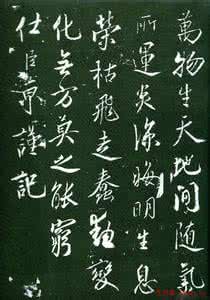 萬物生天地間隨氣
所運炎涼晦明生息
榮枯飛走蠢動變
化無方莫之能窮
仕臣京謹記